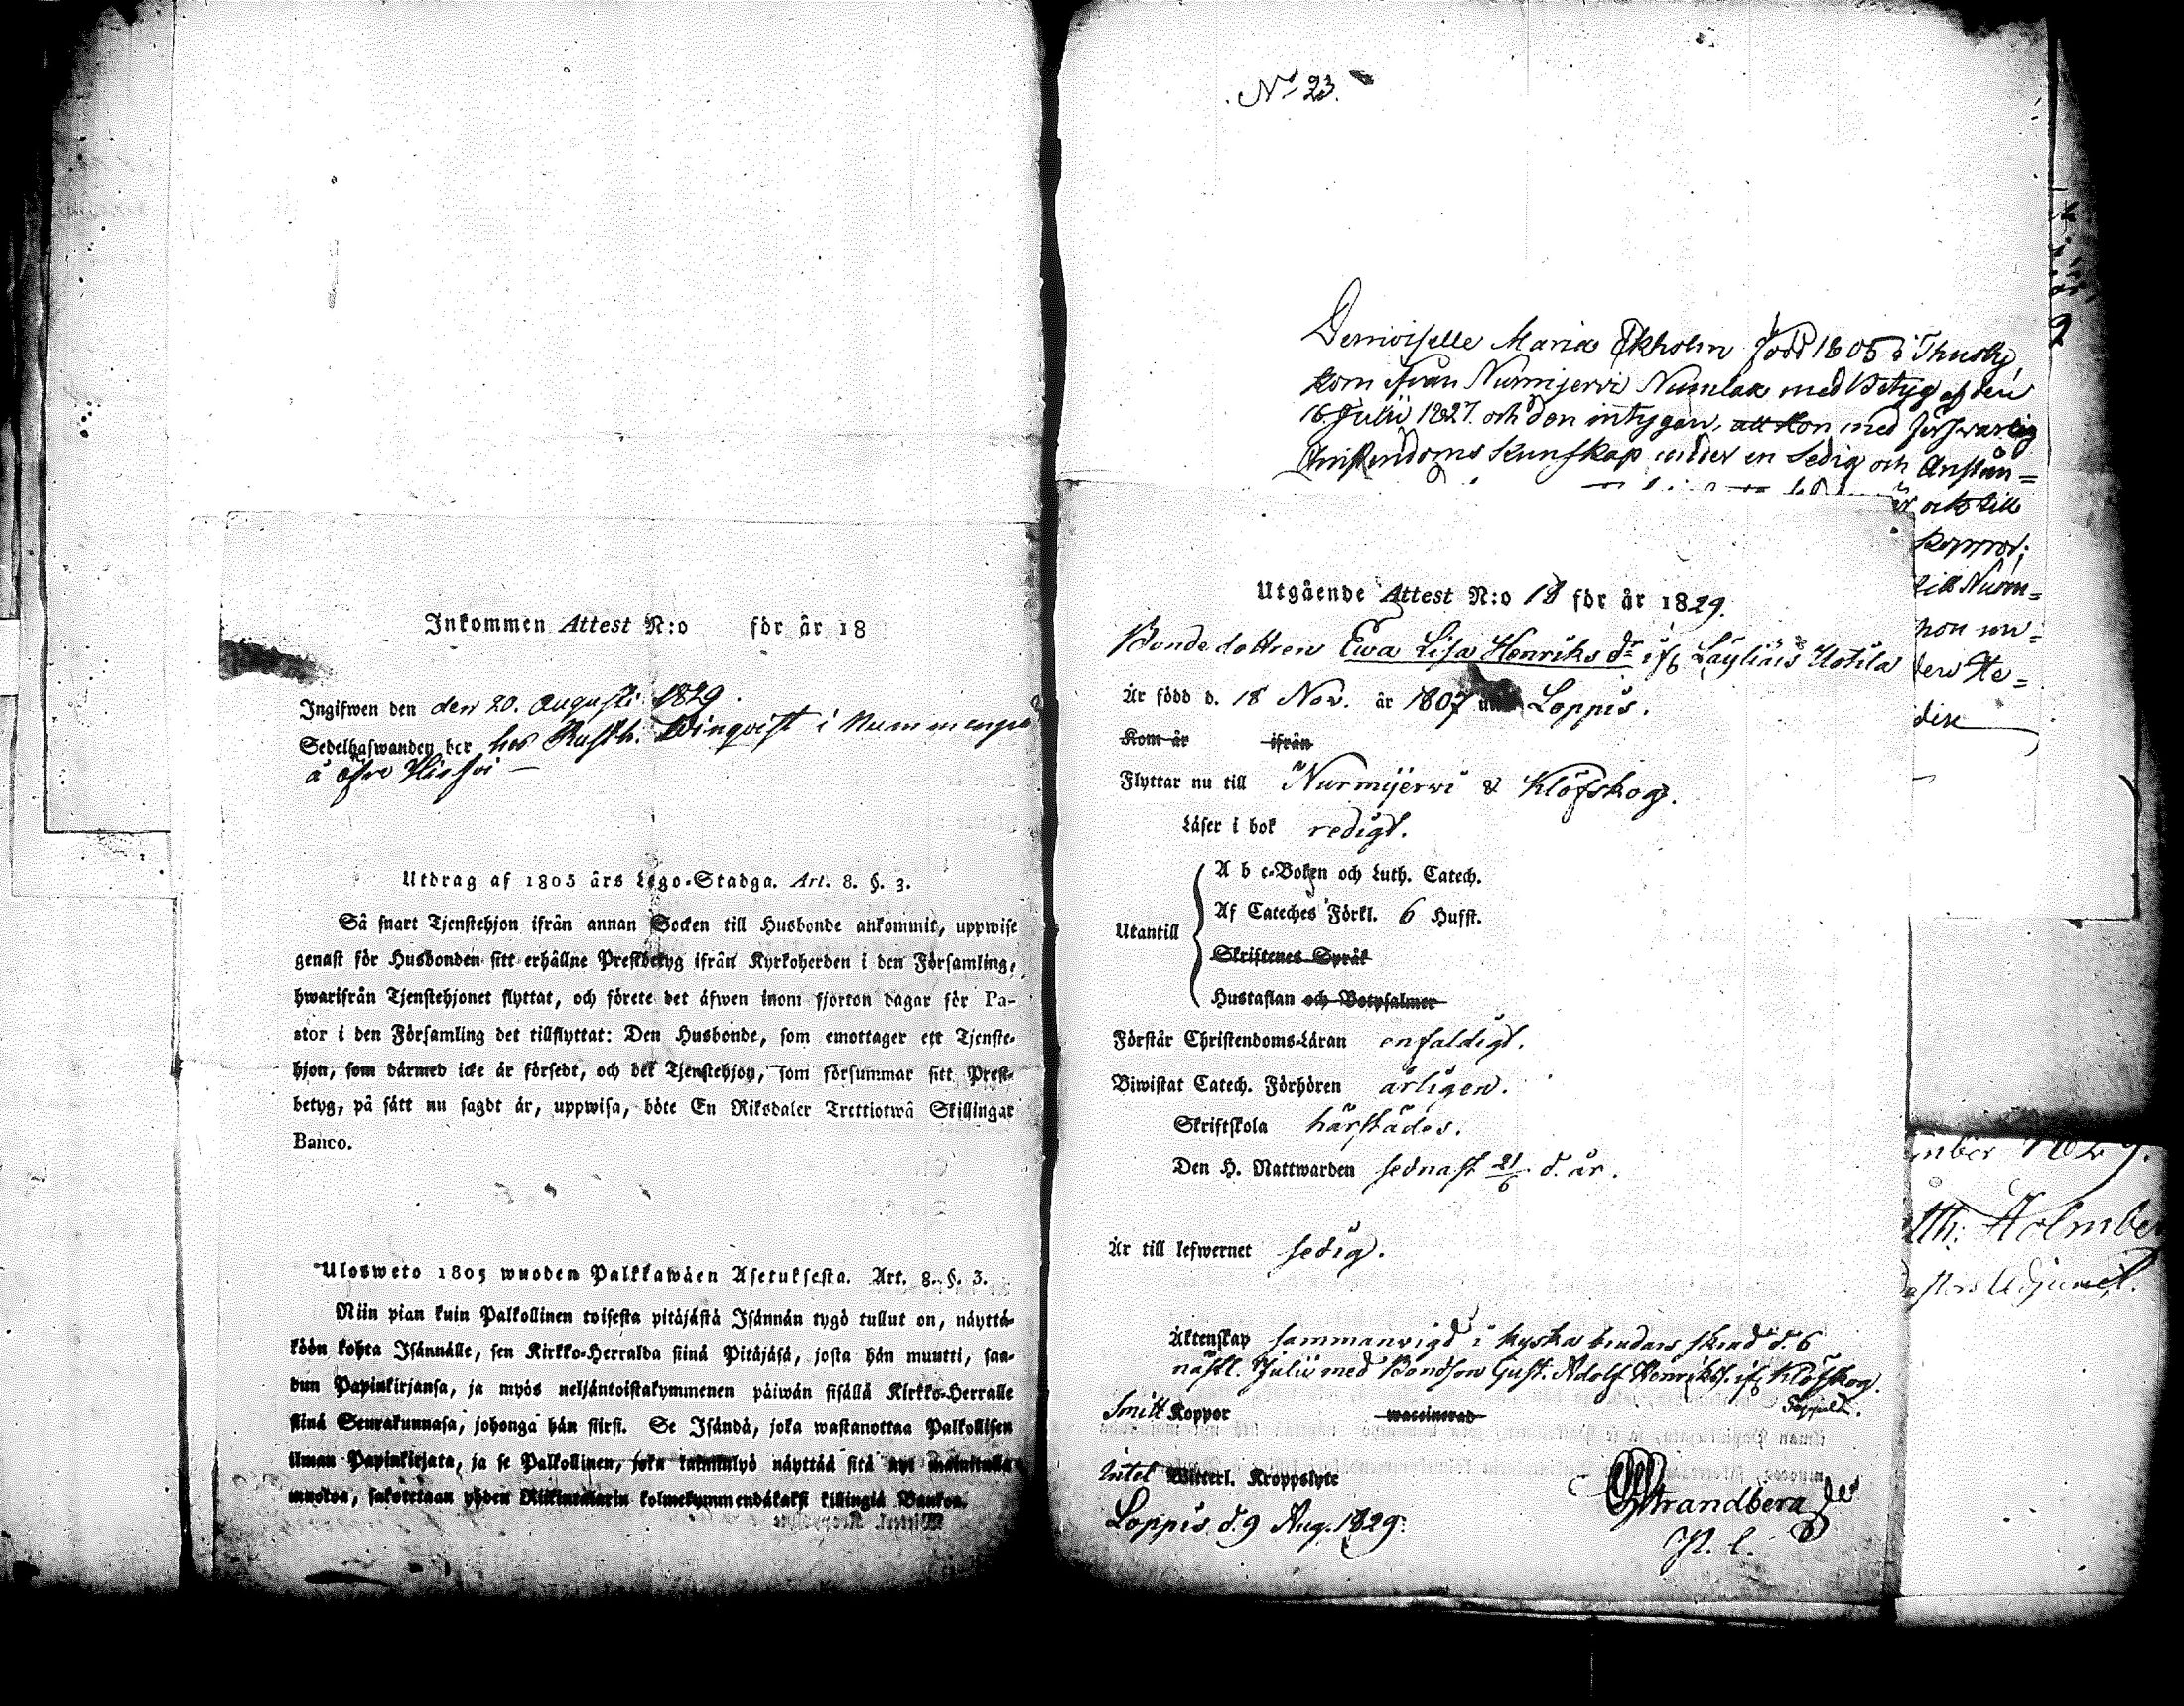 Inkommen Attest N:o för år 18
Ingifwen den den 20. Augusti 1829.
Sedelhafwanden bor hos Rusth. Winqvist i
å öfre
Utdrag af 1805 års Lego-Stadga. Art. 8. §. 3.
Så snart Tjenstehjon ifrån annan Socken till Husbonde ankommit, uppwise
genast för Husbonden sitt erhållne Prestbetyg ifrån Kyrkoherden i den Församling,
hwarifrån Tjenstehjonet flyttat, och förete det äfwen inom fjorton dagar för Pa-
stor i den Församling det tillflyttat: Den Husbonde, som emottager ett Tjenste-
hjon, som därmed icke är försedt, och det Tjenstehjon, som försummar sitt Prest-
betyg, på sätt nu sagdt är, uppwisa, böte En Riksdaler Trettiotwå Skillingar
Banco.
Ulosweto 1805 wuoden Palkkawäen Asetuksesta. Art. 8. §. 3.
Niin pian kuin Palkollinen toisesta pitäjästä Isännän tygö tullut on, näyttä-
köön kohta Isännälle, sen Kirkko-Herralda siinä Pitäjäsä, josta hän muutti, saa-
dun Papinkirjansa, ja myös neljäntoistakymmenen päiwän sisällä Kirkko-Herralle
siinä Seurakunnasa, johonga hän siirsi. Se Isändä, joka wastanottaa Palkollisen
ilman Papinkirjata, ja se Palkollinen, joka laiminlyö näyttää sitä nyt mainitulla
muotoa, sakotetaan yhden Riikintalarin kolmekymmendäkaksi killingiä Bankoa.
No 23.
Demoiselle Maria Ekholm född 1805 i Thusby,
kom ifrån Nurmijervi Numlax med Betyg af den
16. Julii 1827. och den intygan, att hon med försvarlig
Christendoms Kunskap under en Sedig och Anstän=
är och till
koppor;
till Nurm=
hon un=
den He=
Utgående Attest N:o 18 för år 1829.
Bondedottren Ewa Lisa Henriks dr. ifr. Läyliäis Uotila
Är född d. 18 Nov. år 1807 Loppis.
Kom år ifrån
Flyttar nu till Nurmijervi & Klöfskog.
Läser i bok redigt.
Utantill
A b c-Boken och Luth. Catech.
Af Cateches Förkl. 6 Hufst.
Skriftenes Språk
Hustaflan och Botpsalmer
Förstår Christendoms-Läran enfaldigt.
Biwistat Catech. Förhören årligen.
Skriftskola härstädes.
Den H. Nattwarden sednast 21/6 d. år.
Är till lefwernet sedig.
Äktenskap sammanvigd i kyska brudars skrud d. 6
nästl. Julii med Bondson Gust. Adolf Henrikss. ifr. Klöfskog.
Smitt Koppor waccinerad
Intet Witterl. Kroppslyte
Loppis d. 9 Aug. 1829.
Strandberg
Holmber
Adjunct.